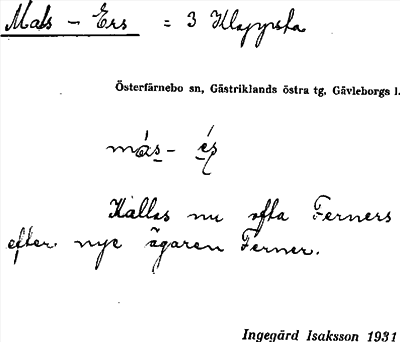 Mats - Ers = 3 Klappsta
Österfärnebo sn, Gästriklands östra tg, Gävleborgs l.
más - és
Kallas nu ofta Ferners
efter nye ägaren Ferner.
Ingegärd Isaksson 1931